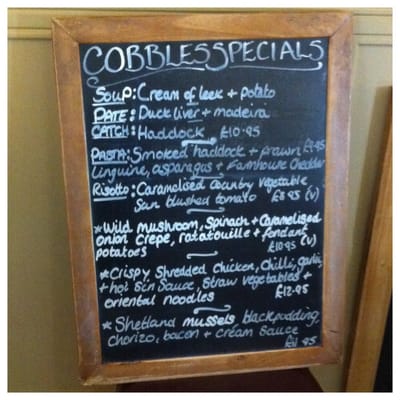 COBBLES SPECIALS
SOUP: Cream of leek + potato
PATE: Duck liver + madeira
CATCH: Haddock £10.95
PASTA: Smoked haddock + prawn £9.95
linguine, asparagus + Farmhouse Cheddar
Risotto: Caramelised country vegetable
Sun blushed tomato £8.95 (v)
*Wild mushroom, Spinach + Caramelised
onion crepe, ratatouille + fondant
potatoes £10.95 (v)
*Crispy Shredded chicken, chilli, garlic
+ hoi sin sauce, straw vegetables +
oriental noodles £12.95
* Shetland mussels, black pudding,
chorizo, bacon + cream sauce
£11.95